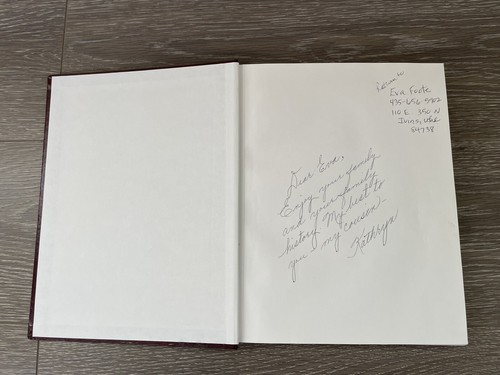 Return to
Eva Foote
435-656-5302
110 E. 350 N
Ivins, Utah
84738
Dear Eva,
Enjoy your family
and your family
history. My best to
you - my couson.
Kathryn